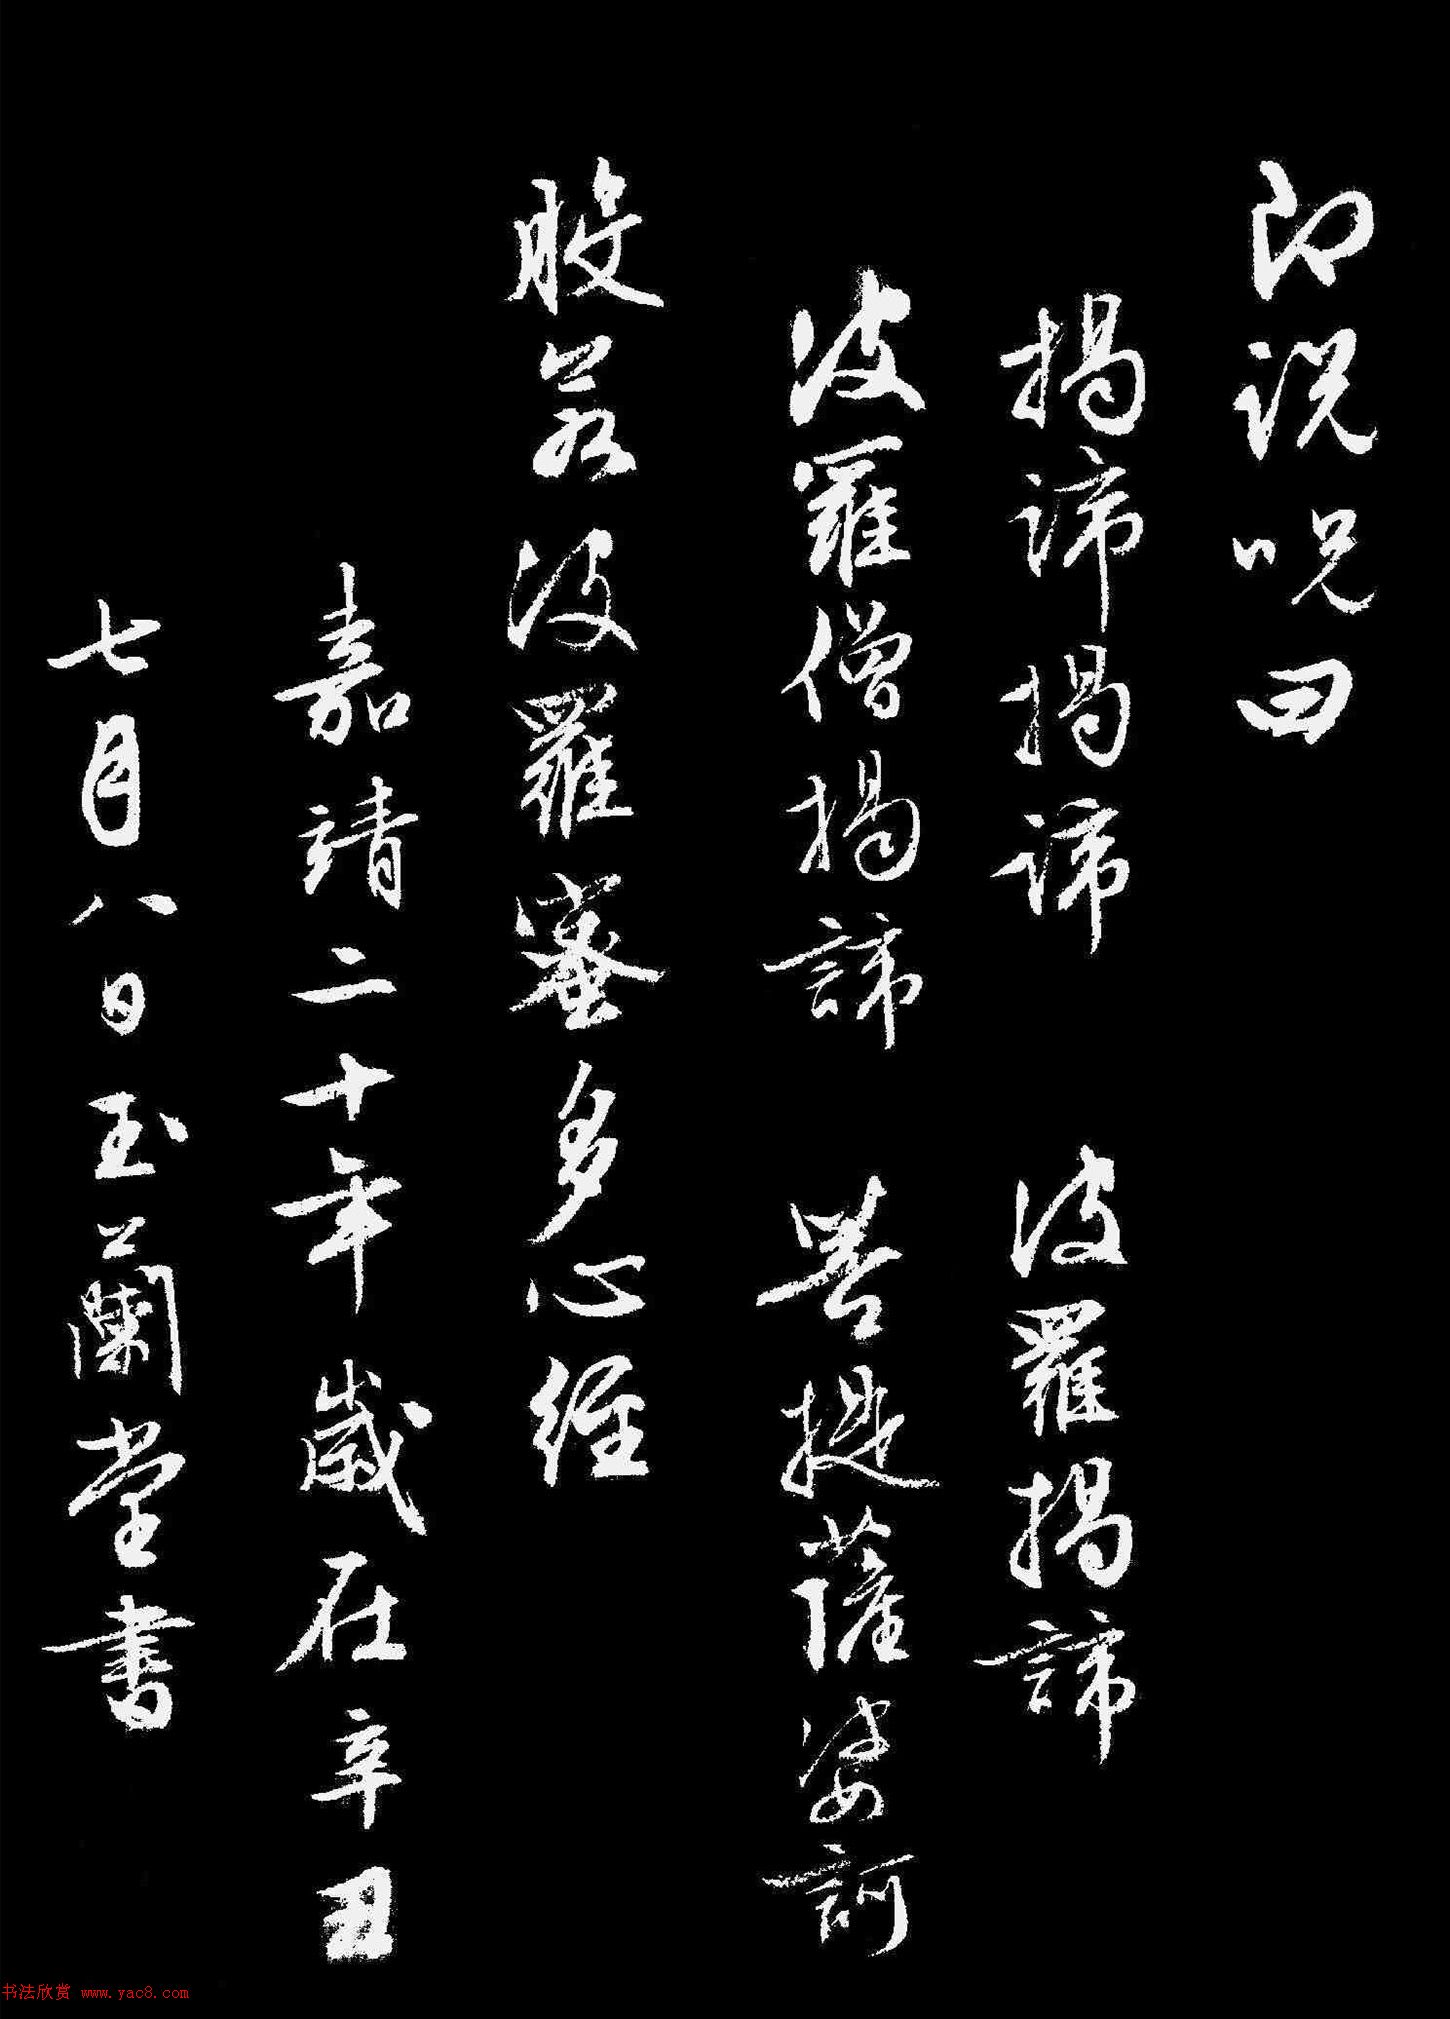 即說呪曰
揭諦揭諦 波羅揭諦
波羅僧揭諦 菩提薩婆訶
般若波羅蜜多心經
嘉靖二十年歲在辛丑
七月八日玉蘭堂書
书法欣赏 www.yac8.com